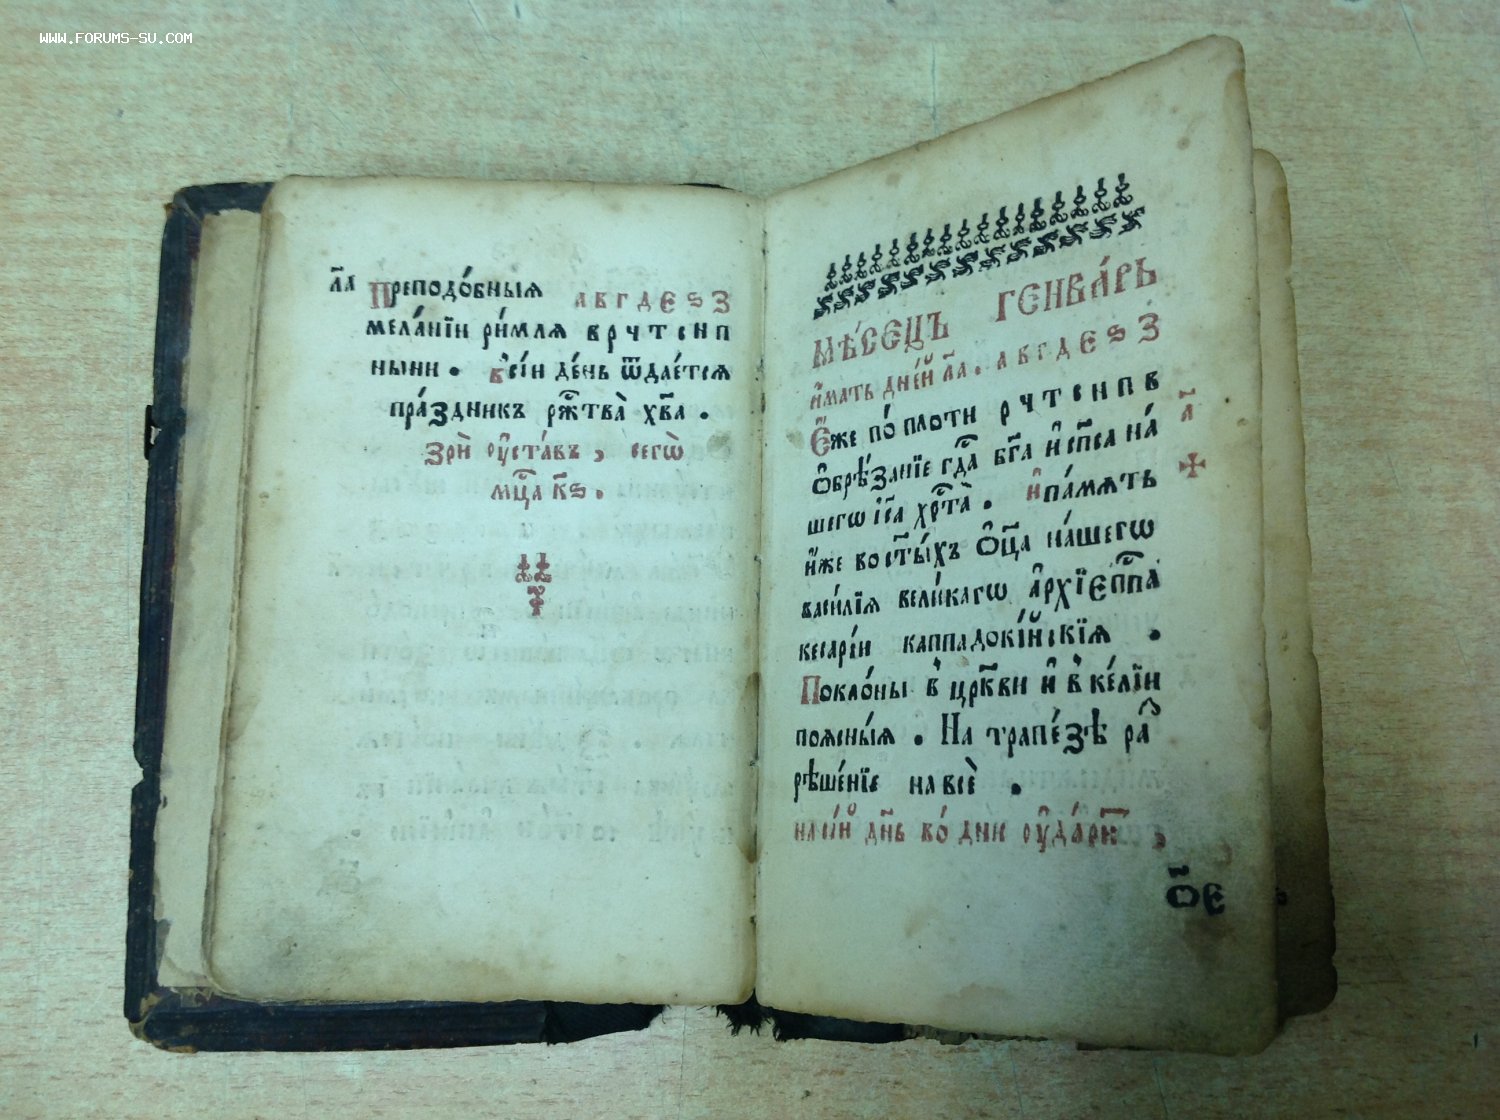 WWW.FORUMS-SU.COM
л҃а Преподо́бныѧ а в г д е ѕ з
мела́нїи ри́млѧ в р ч т с н п
ныни . в̾сі́и де́нь ѿдае́тсѧ
пра́здникъ рж҃тва̀ хв҃а .
Зрѝ ᲂу҆ста́въ , сегѡ̀
мц҃а к҃ѕ .
МѢ́СЕЦЪ ГЕНВА́РЬ
и҆́мать дне́й л҃а . а в г д е ѕ з
Е҆́же по́ плоти р ч т с н п в
а҃
ѻ҆брѣ́занїе гд҃а бг҃а и҆ сп҃са на́
шегѡ іс҃а хр҃та̀ . и҆ па́мѧть
и҆́же во ст҃ы́хъ ѻ҆ц҃а на́шегѡ
васи́лїѧ вели́кагѡ а҆рхїеп҃па
кесарі́и каппадокі́йскїѧ .
Покло́ны в̾ цр҃кви и҆ в̾ ке́лїи
поѧсны́ѧ . На трапе́зѣ ра
рѣше́нїе на всѐ .
на сі́й дн҃ь во́ дни ᲂу҆да́рѧ ,
ѻ҃е